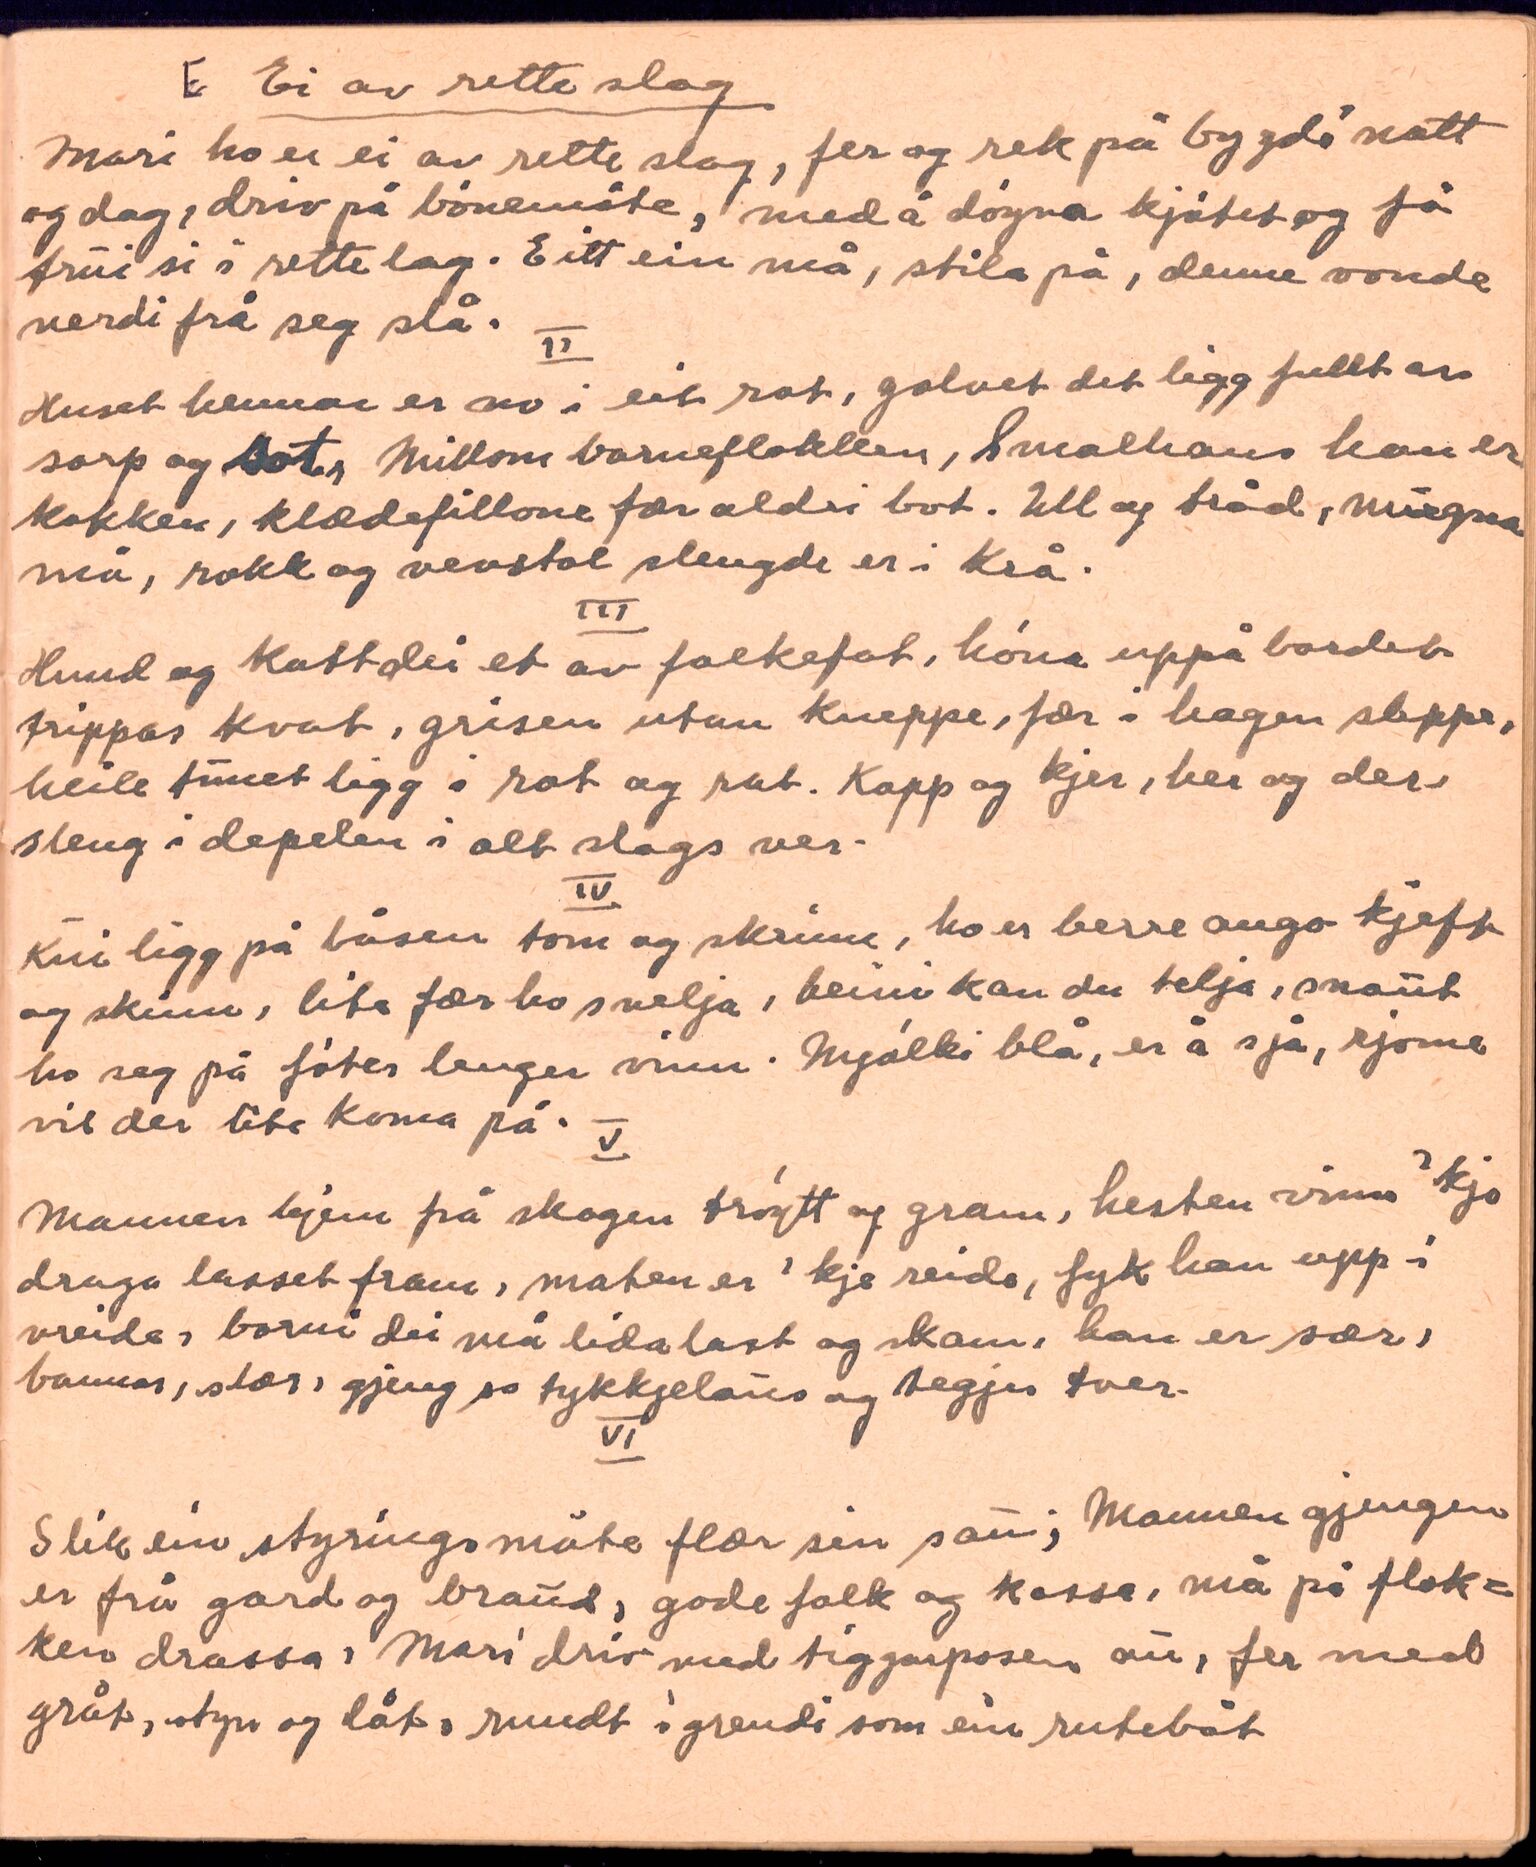 E Ei av rette slag
Mari ho er ei av rette slag, fer og rek på bygdi natt
og dag, driv på bónemóte, med å dógva kjótet, og få
trúi si i rette lag. Eitt ein må, stila på, denne vonde
verdi frå seg slå.
II
Huset hennar er no i eit rot, golvet det ligg fullt av
sorp og sot, Millom barneflokken, Smalhans han er
kokken, klædefillone fær aldri bot. Ull og tråd, mugna
må, rokk og vevstol slengde er i krå.
III
Hund og katt dei et av folkefat, hóna uppå bordet
trippar kvat, grisen utan kneppe, fær i hagen sleppe,
heile túnet ligg i rot og rat. Kopp og kjer, her og der,
sleng i depelen i alt slags ver.
IV
Kúi ligg på båsen tom og skrinn, ho er berre augo kjeft
og skinn, lite fær ho svelja, beini kan du telja, snaút
ho seg på fóter lenger vinn. Mjólki blå, er å sjå, rjome
vil der lite koma på.
V
Mannen hjem frå skogen tróytt og gram, hesten vinn 'kje
draga lasset fram, maten er 'kje reide, fyk han upp i
vreide, borni dei må lida last og skam, han er sær,
bannar, slær, gjeng so tykkjelaús og tegjer tver.
VI
Slik ein styringsmåte flær sin saú; Mannen gjengen
er frå gard og braúd, gode folk og kasse, må på flok=
ken drassa, Mari driv med tiggarposen aú, fer med
gråt, styn og låt, rundt i grendi som ein rutebåt